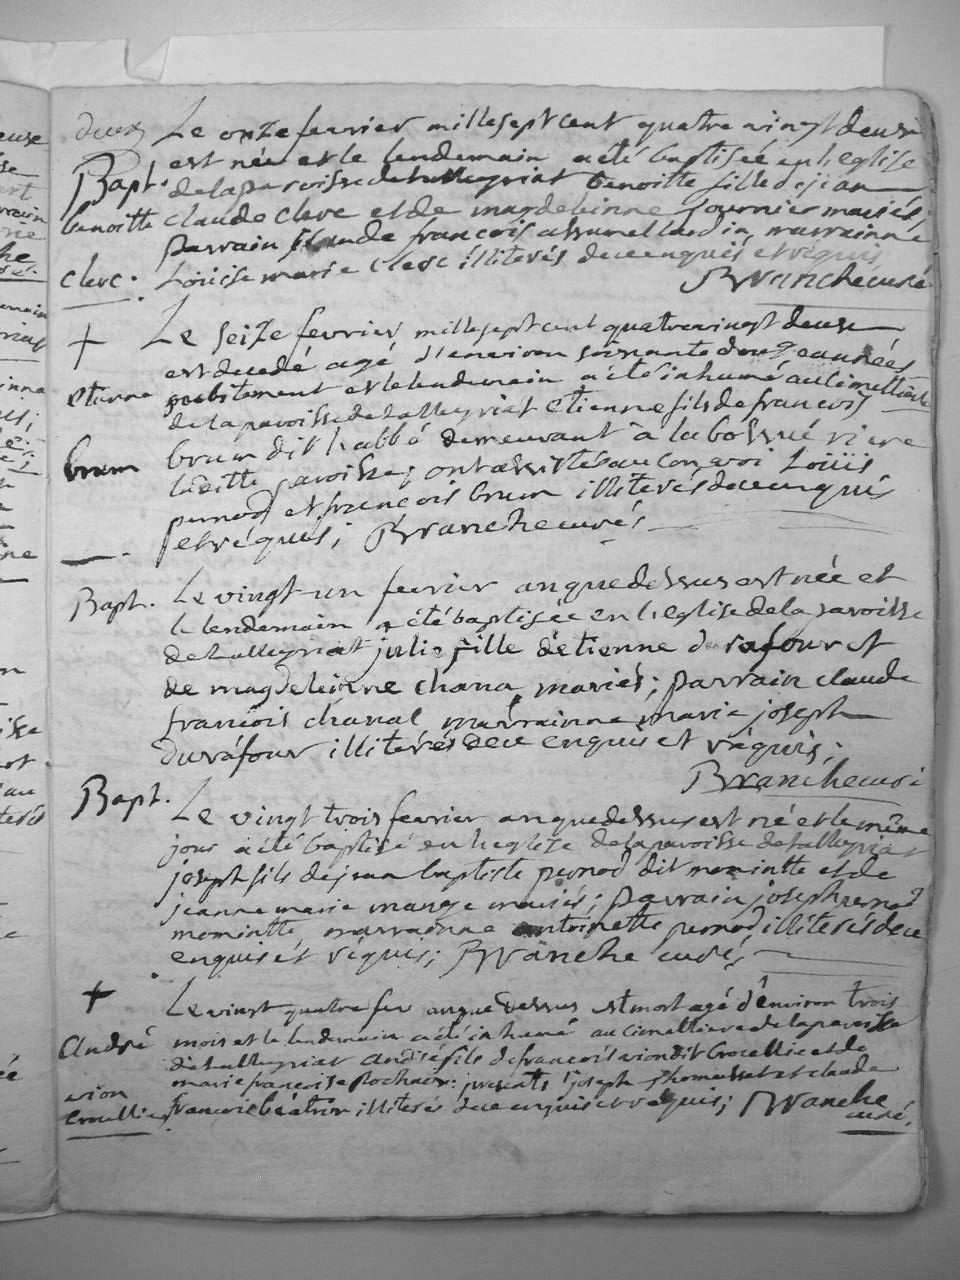 deux Le onze fevrier mille sept cent quatre vingt deux
est née et le lendemain a été baptisée en l'eglise
Bapt. de la paroisse de talleyriat benoitte fille de jean
benoitte claude clerc et de magdeleinne fournier mariés;
parrain claude francois marrainne
clerc. Louise marie clerc illiterés de ce enquis et réquis
Branche curé
+ Le seize fevrier mille sept cent quatre vingt deux
est decedé agé d'environ soixante douze années
etienne subitement et le lendemain a été inhumé au cimettiere
de la paroisse de talleyriat etienne fils de francois
brun dit l'abbé demeurant à la bossue riere
brun laditte paroisse; ont assistés au convoi Loüis
pernod et françois brun illiterés de ce enquis
et réquis; Branche curés
Bapt. Le vingt-un fevrier an que dessus est née et
le lendemain a été baptisée en l'eglise de la paroisse
de talleyriat julie fille détienne durafour et
de magdeleinne chanal mariés; parrain claude
francois chanal marrainne marie joseph
durafour illiterés de ce enquis et réquis;
Branche curé
Bapt. Le vingt trois fevrier an que dessus est né et le même
jour a été baptisé en l'eglise de la paroisse de talleyriat
joseph fils de jean baptiste pernod dit momintte et de
jeanne marie mange mariés; parrain joseph pernod
momintte marrainne antoinette pernod illiterés de ce
enquis et réquis; Branche curé,
+ Le vingt quatre fev an que dessus est mort agé d'environ trois
André mois et le lendemain a été inhumé au cimettiere de la paroisse
de talleyriat andré fils de francois vion dit et de
vion marie francoise presents joseph thomasset et claude
francois béatrix illiterés de ce enquis et réquis; Branche
curé.